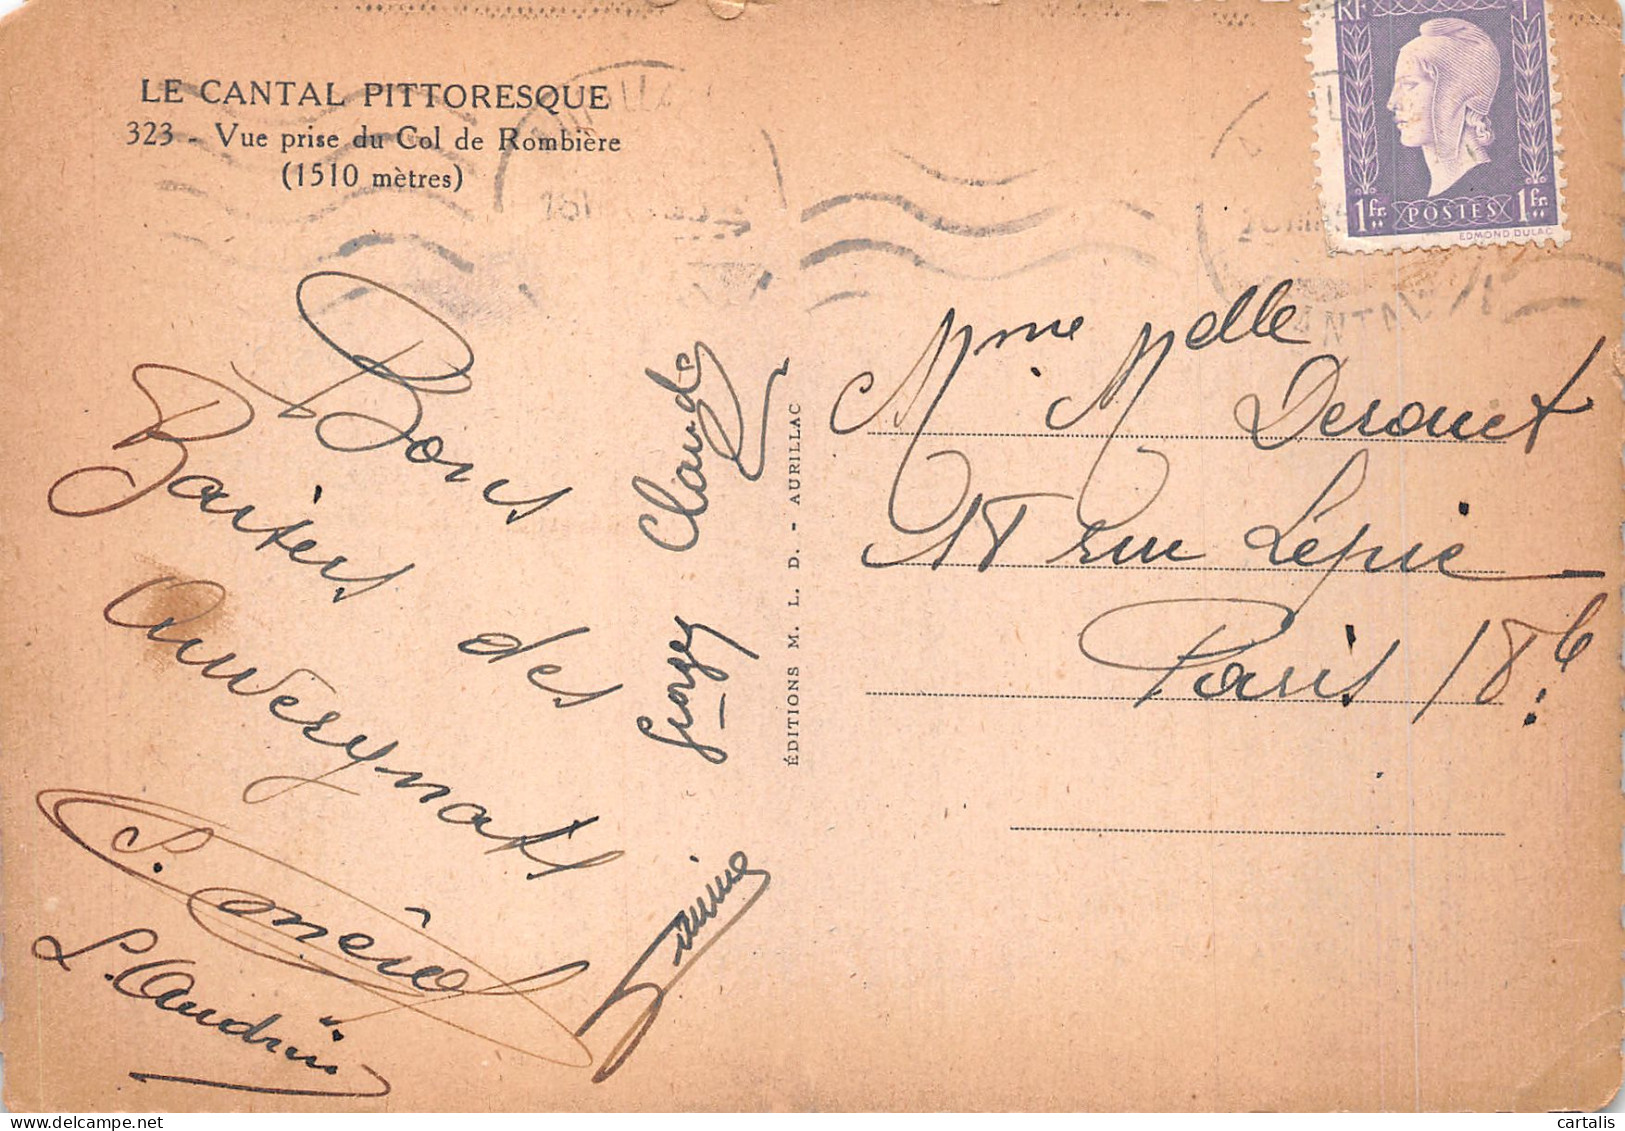 LE CANTAL PITTORESQUE
323 - Vue prise du Col de Rombière
(1510 mètres)
RF
1 Fr. POSTES 1 Fr.
EDMOND DULAC
ANTAL
Bons
Baisers des
Auvergnats
L. Andrieu
Georges Claude
Jeannine
ÉDITIONS M. L. D. - AURILLAC
Mme Melle
M. M. Derouet
18 rue Lepic
Paris 18e
cartalis